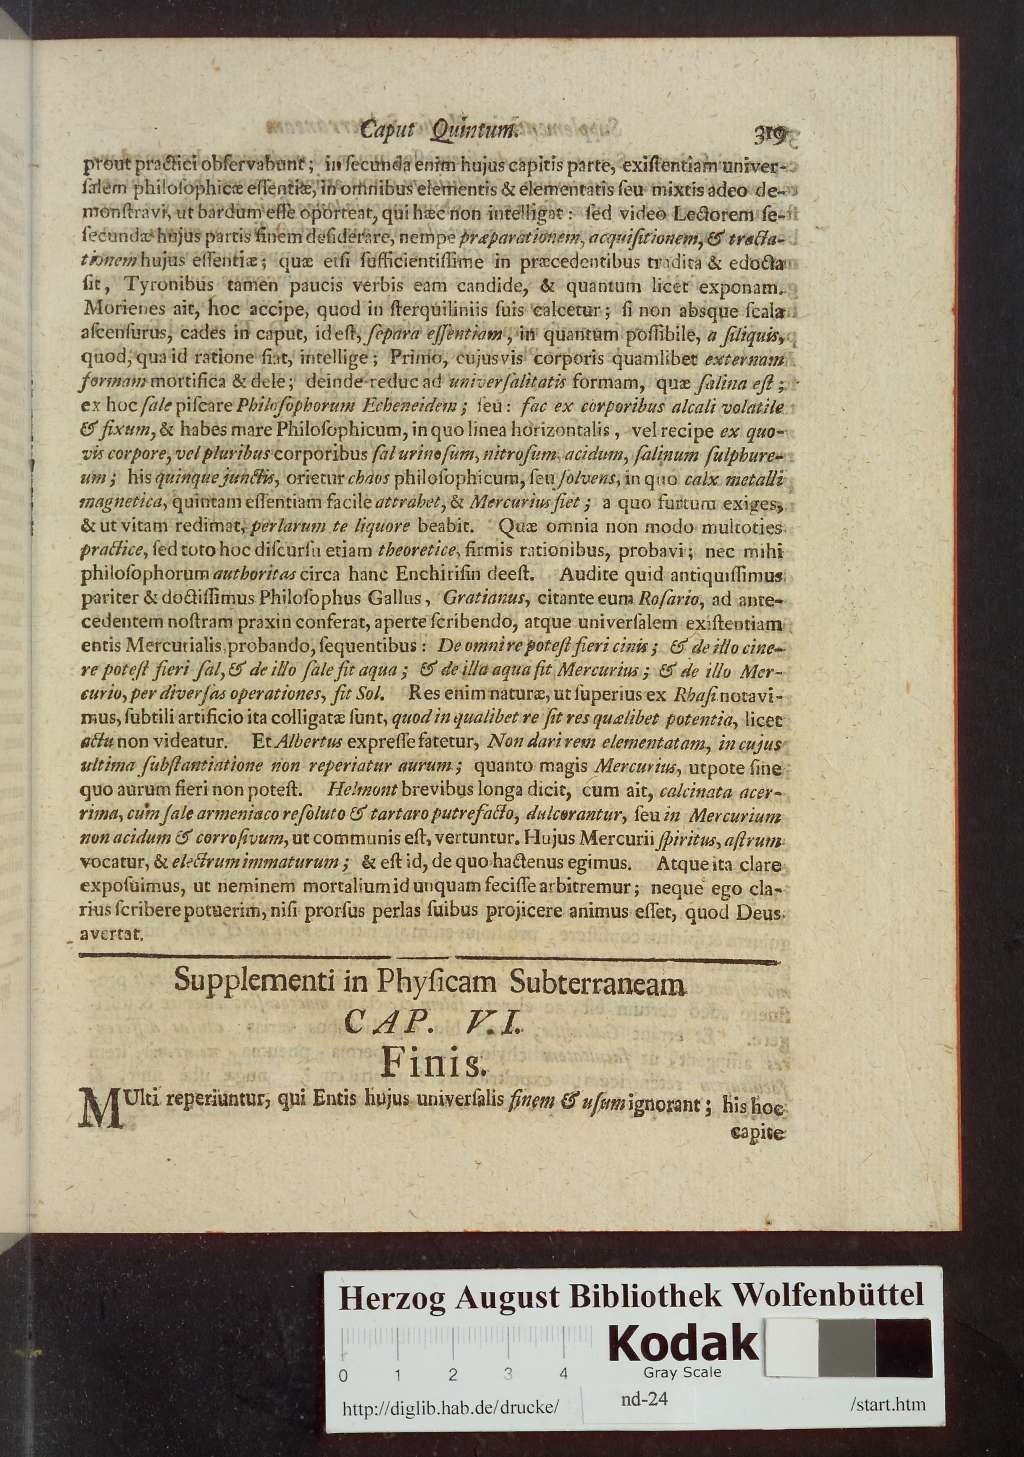 Caput Quintum. 319
prout practici observabunt; in secunda enim hujus capitis parte, existentiam univer-
salem philosophicæ essentiæ, in omnibus elementis & elementatis seu mixtis adeo de-
monstravi, ut bardum esse oporteat, qui hæc non intelligat: sed video Lectorem se-
secundæ hujus partis finem desiderare, nempe præparationem, acquisitionem, & tracta-
tionem hujus essentiæ; quæ etsi sufficientissime in præcedentibus tradita & edocta
sit, Tyronibus tamen paucis verbis eam candide, & quantum licet exponam.
Morienes ait, hoc accipe, quod in sterquiliniis suis calcetur; si non absque scala
ascensurus, cades in caput, id est, separa essentiam, in quantum possibile, a siliquis,
quod, qua id ratione fiat, intellige; Primo, cujusvis corporis quamlibet externam
formam mortifica & dele; deinde reduc ad universalitatis formam, quæ salina est;
ex hoc sale piscare Philosophorum Echeneidem; seu: fac ex corporibus alcali volatile
& fixum, & habes mare Philosophicum, in quo linea horizontalis, vel recipe ex quo-
vis corpore, vel pluribus corporibus sal urinosum, nitrosum, acidum, salinum sulphure-
um; his quinque junctis, orietur chaos philosophicum, seu solvens, in quo calx metalli
magnetica, quintam essentiam facile attrahet, & Mercurius fiet; a quo furtum exiges,
& ut vitam redimat, perlarum te liquore beabit. Quæ omnia non modo multoties
practice, sed toto hoc discursu etiam theoretice, firmis rationibus, probavi; nec mihi
philosophorum authoritas circa hanc Enchirisin deest. Audite quid antiquissimus
pariter & doctissimus Philosophus Gallus, Gratianus, citante eum Rosario, ad ante-
cedentem nostram praxin conferat, aperte scribendo, atque universalem existentiam
entis Mercurialis probando, sequentibus: De omni re potest fieri cinis; & de illo cine-
re potest fieri sal, & de illo sale fit aqua; & de illa aqua fit Mercurius; & de illo Mer-
curio, per diversas operationes, fit Sol. Res enim naturæ, ut superius ex Rhasi notavi-
mus, subtili artificio ita colligatæ sunt, quod in qualibet re sit res quælibet potentia, licet
actu non videatur. Et Albertus expresse fatetur, Non dari rem elementatam, in cujus
ultima substantiatione non reperiatur aurum; quanto magis Mercurius, utpote sine
quo aurum fieri non potest. Helmont brevibus longa dicit, cum ait, calcinata acer-
rima, cum sale armeniaco resoluto & tartaro putrefacto, dulcorantur, seu in Mercurium
non acidum & corrosivum, ut communis est, vertuntur. Hujus Mercurii spiritus, astrum
vocatur, & electrum immaturum; & est id, de quo hactenus egimus. Atque ita clare
exposuimus, ut neminem mortalium id unquam fecisse arbitremur; neque ego cla-
rius scribere potuerim, nisi prorsus perlas suibus projicere animus esset, quod Deus
avertat.
Supplementi in Physicam Subterraneam
CAP. VI.
Finis.
MUlti reperiuntur, qui Entis hujus universalis finem & usum ignorant; his hoc
capite
Herzog August Bibliothek Wolfenbüttel
Kodak
Gray Scale
0 1 2 3 4
http://diglib.hab.de/drucke/ nd-24 /start.htm